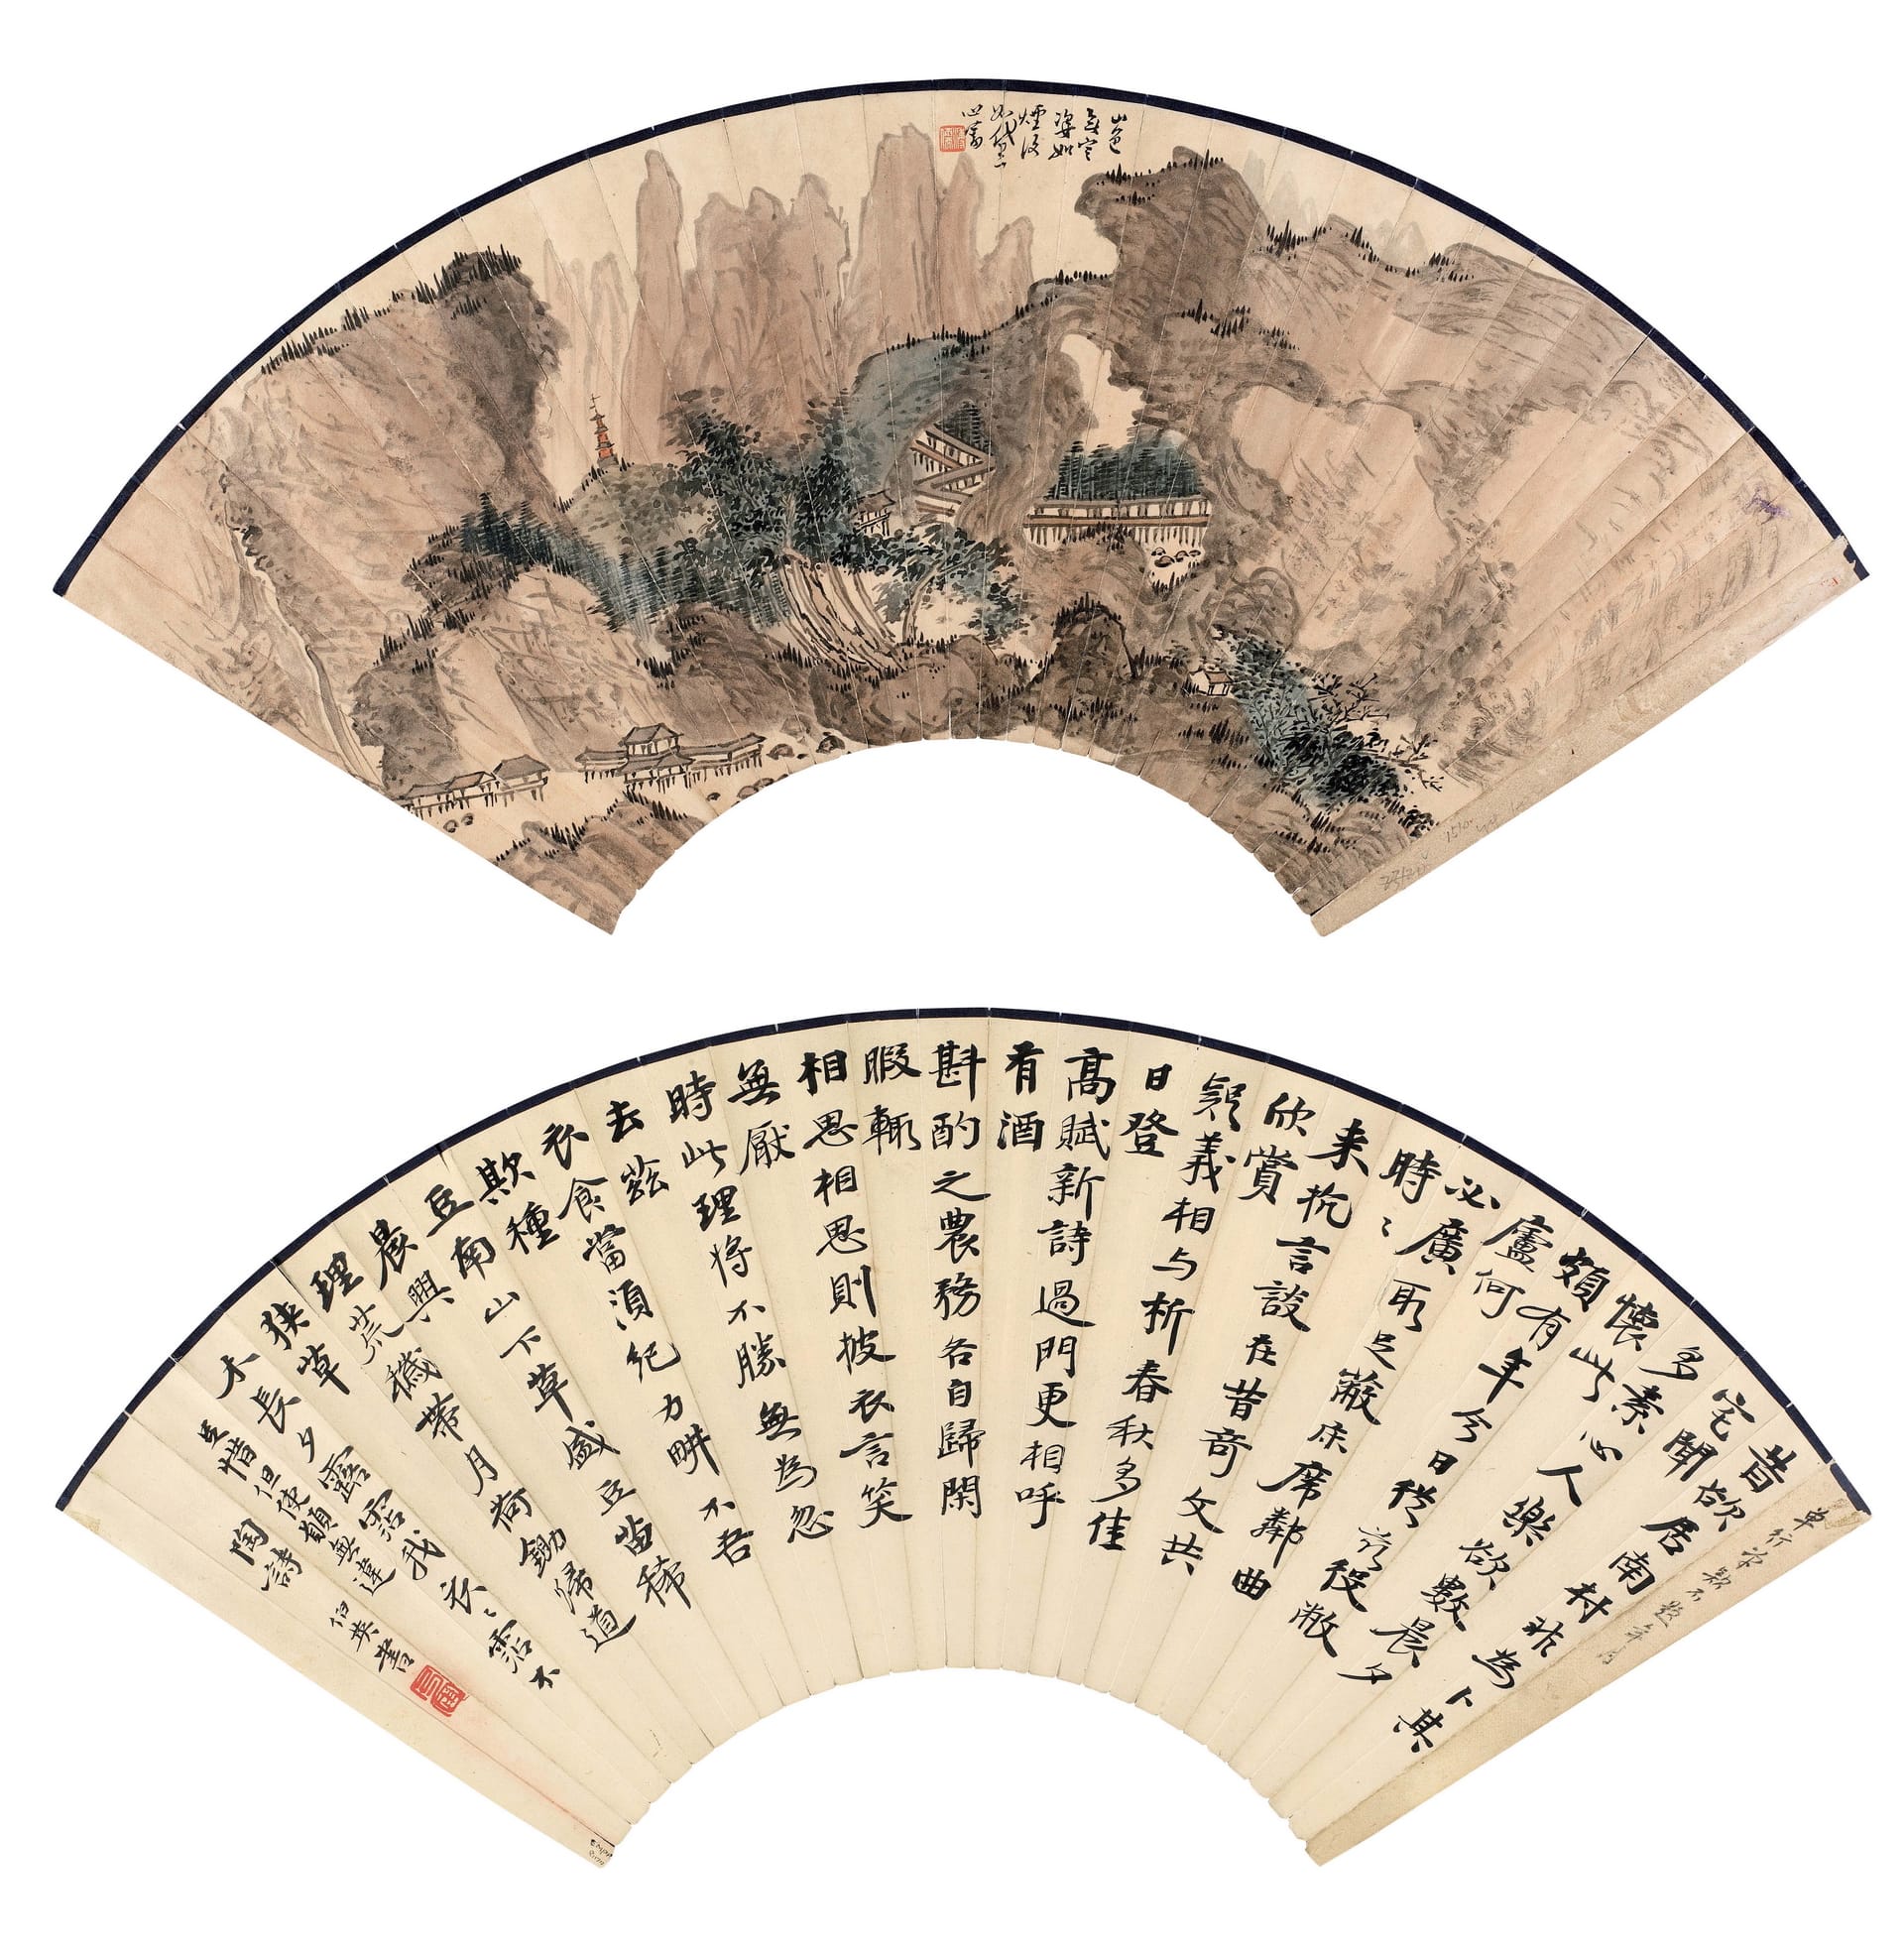 山色
無定
姿如
煙復
如黛
心畬
單行字款不題年月
昔欲居南村非為卜其
宅聞
多素心人樂欲數晨夕
懷此
頗有年今日從茲役敝
廬何
必廣取足蔽床席鄰曲
時〻
来抗言談在昔奇文共
欣賞
疑義相与析春秋多佳
日登
高賦新詩過門更相呼
有酒
斟酌之農務各自歸閑
暇輒
相思相思則披衣言笑
無厭
時此理将不勝無為忽
去茲
衣食當須紀力畊不吾
欺種
豆南山下草盛豆苗稀
晨興
理荒穢帶月荷鋤歸道
狹草
木長夕露沾我衣〻沾不
足惜但使願無違
陶詩 伯英書